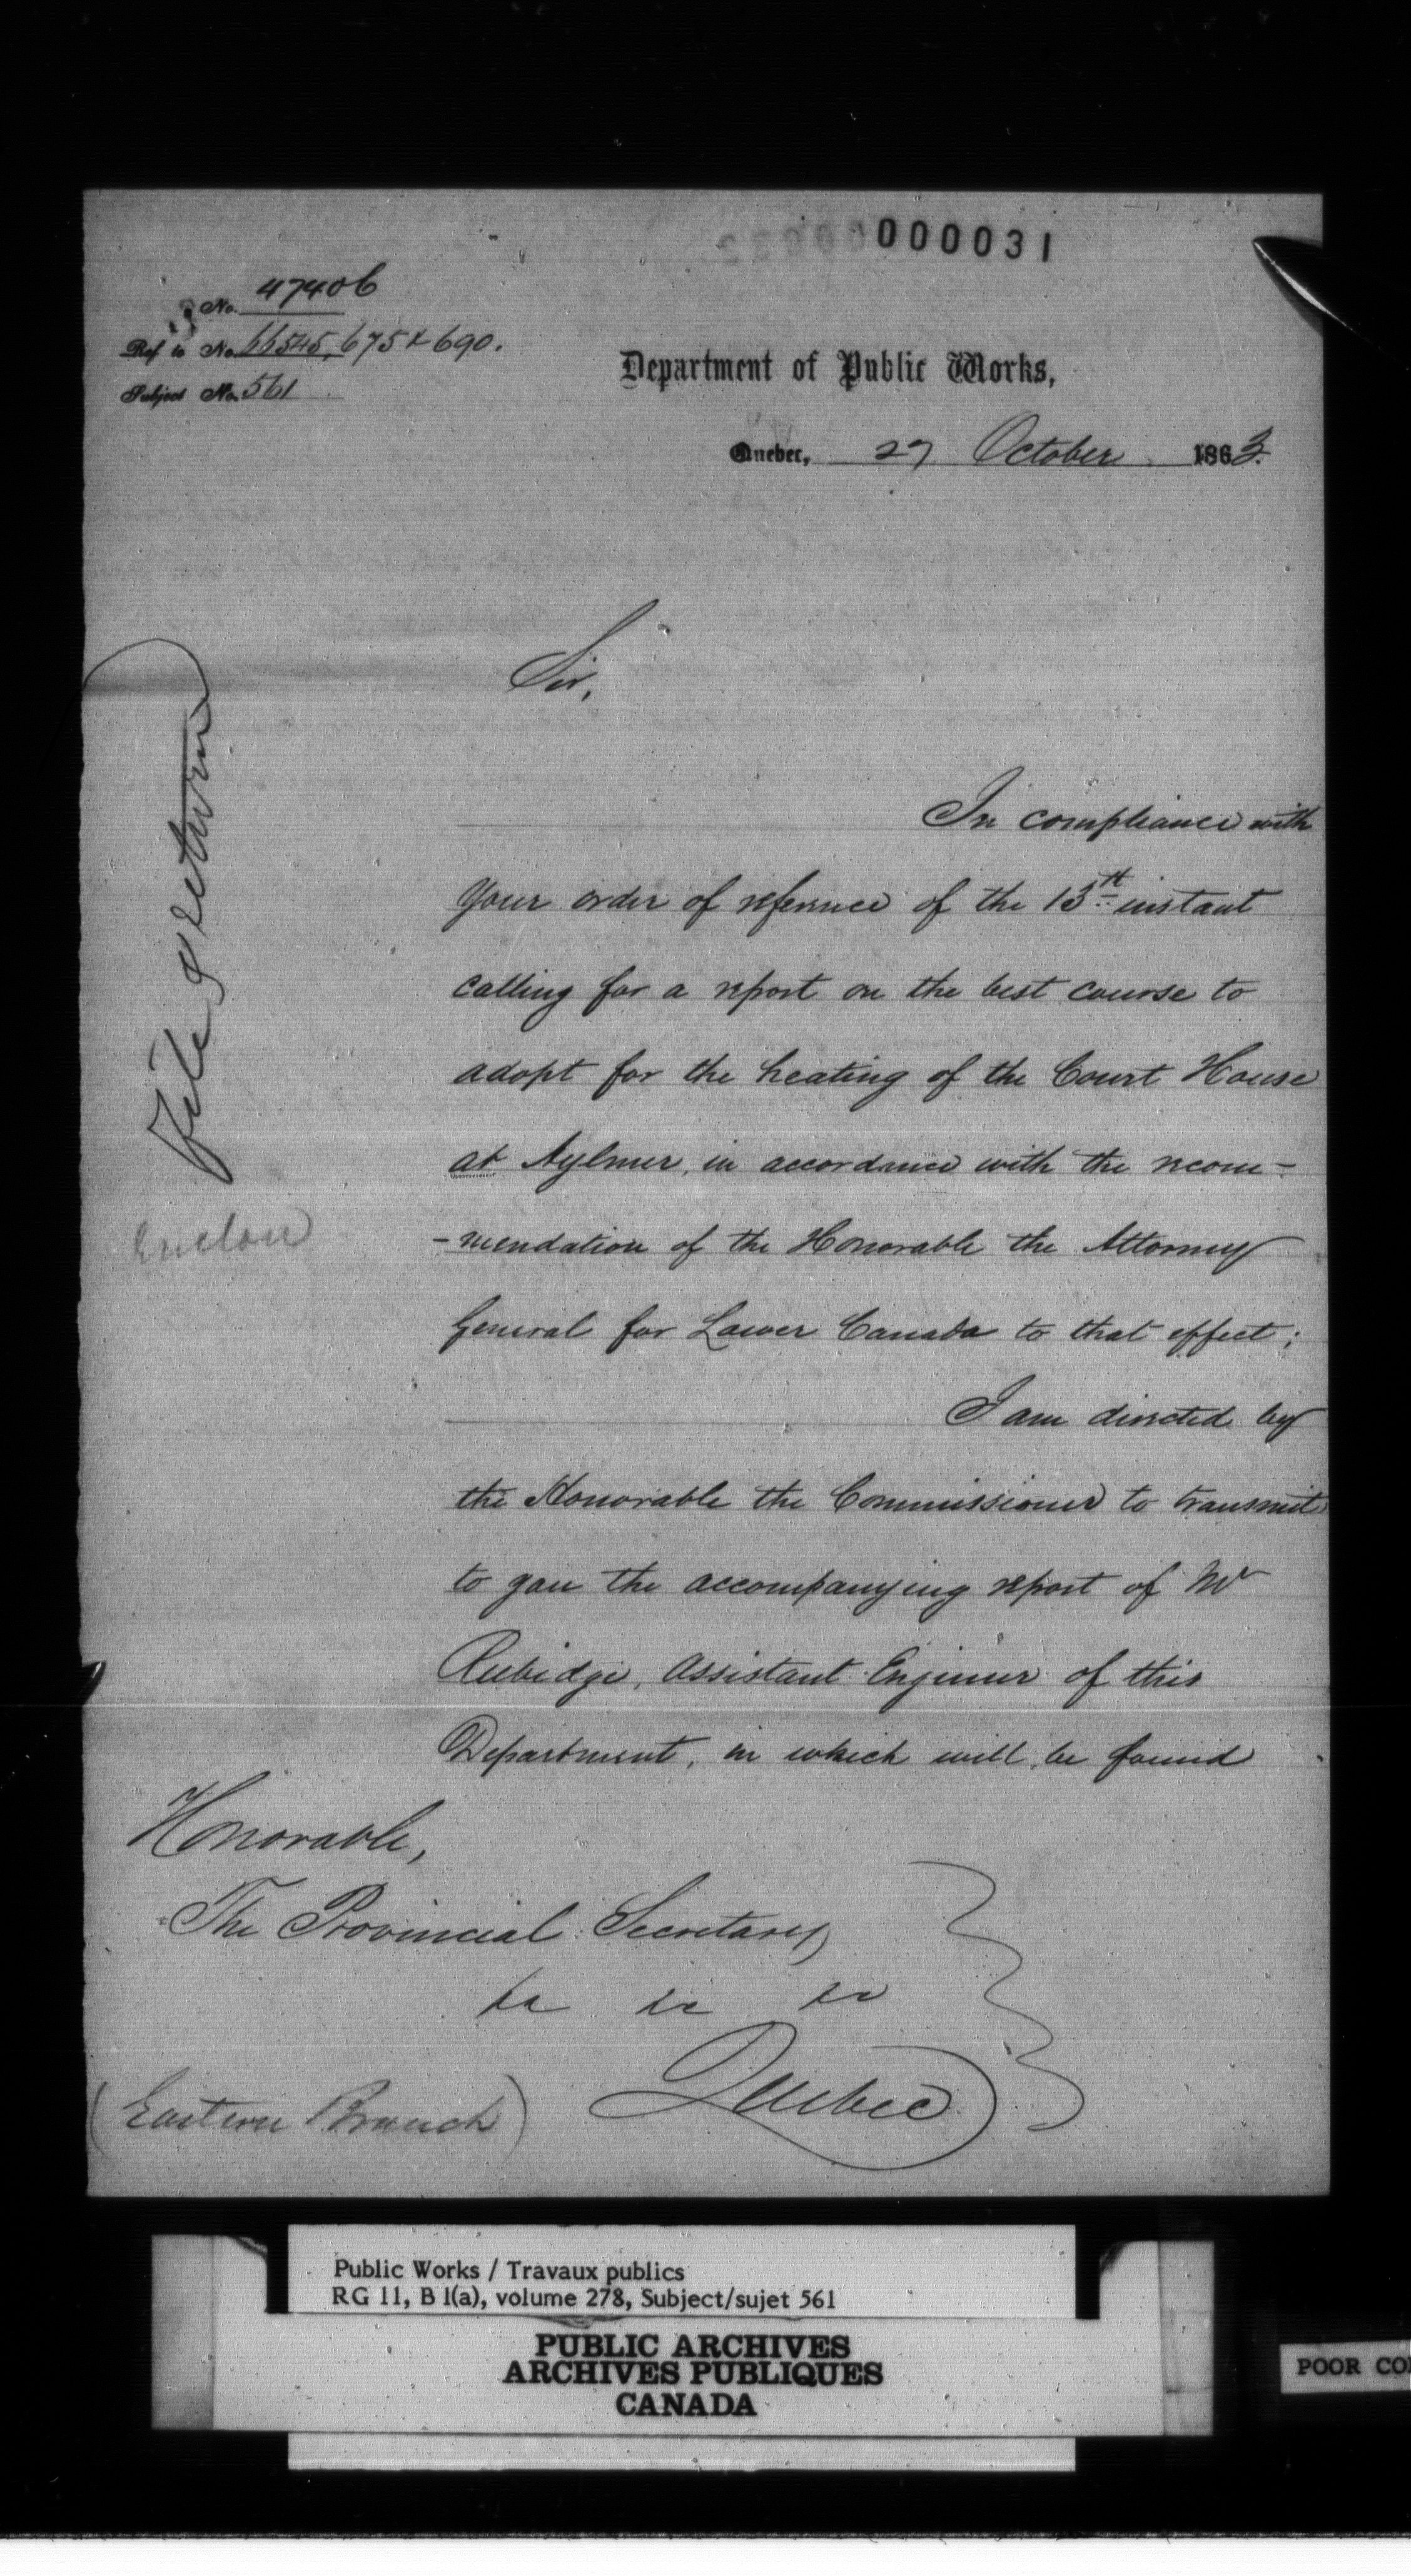 000031
No. 47406
Ref to No. 66545, 675 & 690.
Subject No. 561
Department of Public Works,
Quebec, 27 October 1863.
Sir,
In compliance with
your order of reference of the 13th instant
calling for a report on the best course to
adopt for the heating of the Court House
at Aylmer, in accordance with the recom-
-mendation of the Honorable the Attorney
General for Lower Canada to that effect;
I am directed by
the Honorable the Commissioner to transmit
to you the accompanying report of Mr
Rubidge, Assistant Engineer of this
Department, in which will be found
Honorable,
The Provincial Secretary
&c &c &c
Quebec
(Eastern Branch)
File & return
Public Works / Travaux publics
RG 11, B 1(a), volume 278, Subject/sujet 561
PUBLIC ARCHIVES
ARCHIVES PUBLIQUES
CANADA
POOR CO